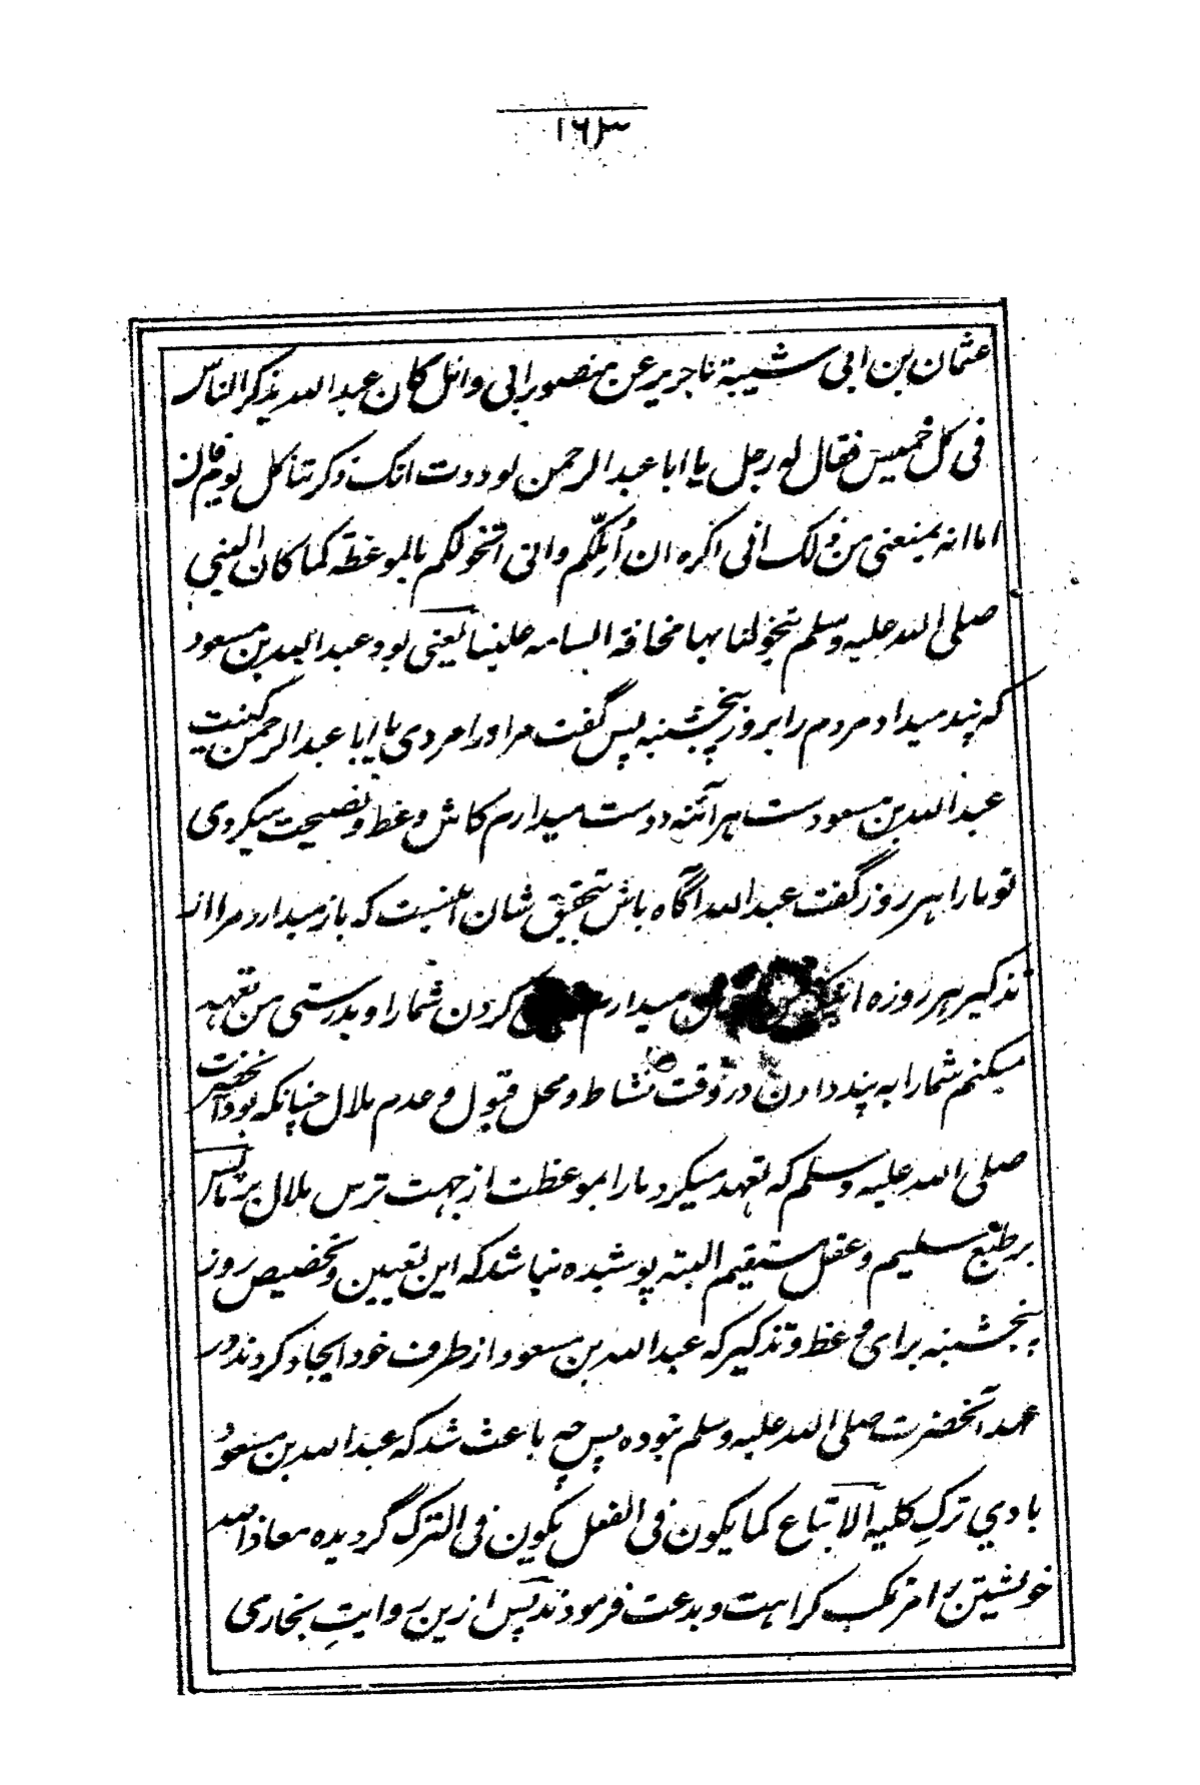 ۱۶۳
عثمان بن ابی شیبة نا جریر عن منصور ابی وائل کان عبد الله یذکر الناس
فی کل خمیس فقال له رجل یا ابا عبد الرحمن لوددت انک ذکرتنا کل یوم قال
اما انه یمنعنی من ذلک انی اکره ان اُمِلَّکم وانی اتخولکم بالموعظة کما کان النبی
صلی الله علیه وسلم یتخولنا بها مخافة السامه علینا یعنی بود عبد الله بن مسعود
که پند میداد مردم را بروز پنجشنبه پس گفت مر او را مردی یا ابا عبد الرحمن کنیت
عبد الله بن مسعودست هر آئنه دوست میدارم کاش وعظ و نصیحت میکردی
تو ما را هر روز گفت عبد الله آگاه باش بتحقیق شان اینست که باز میدارد مرا از
تذکیر هر روزه میدارم کردن شما را و بدرستی من تعهد
میکنم شما را به پند دادن در وقت نشاط و محل قبول و عدم ملال چنانکه بود آنحضرت
صلی الله علیه وسلم که تعهد میکرد ما را بموعظت از جهت ترس ملال بر ما پس
بر طبع سلیم و عقل مستقیم البته پوشیده نباشد که این تعیین و تخصیص روز
پنجشنبه برای وعظ و تذکیر که عبد الله بن مسعود از طرف خود ایجاد کردند در
عهد آنحضرت صلی الله علیه وسلم نبوده پس چه باعث شد که عبد الله بن مسعود
بادی ترکِ کلیه الاتباع کما یکون فی الفعل یکون فی الترک گردیده معاذ الله
خویشتن را مرتکب کراهت و بدعت فرمودند پس ازین روایتِ بخاری